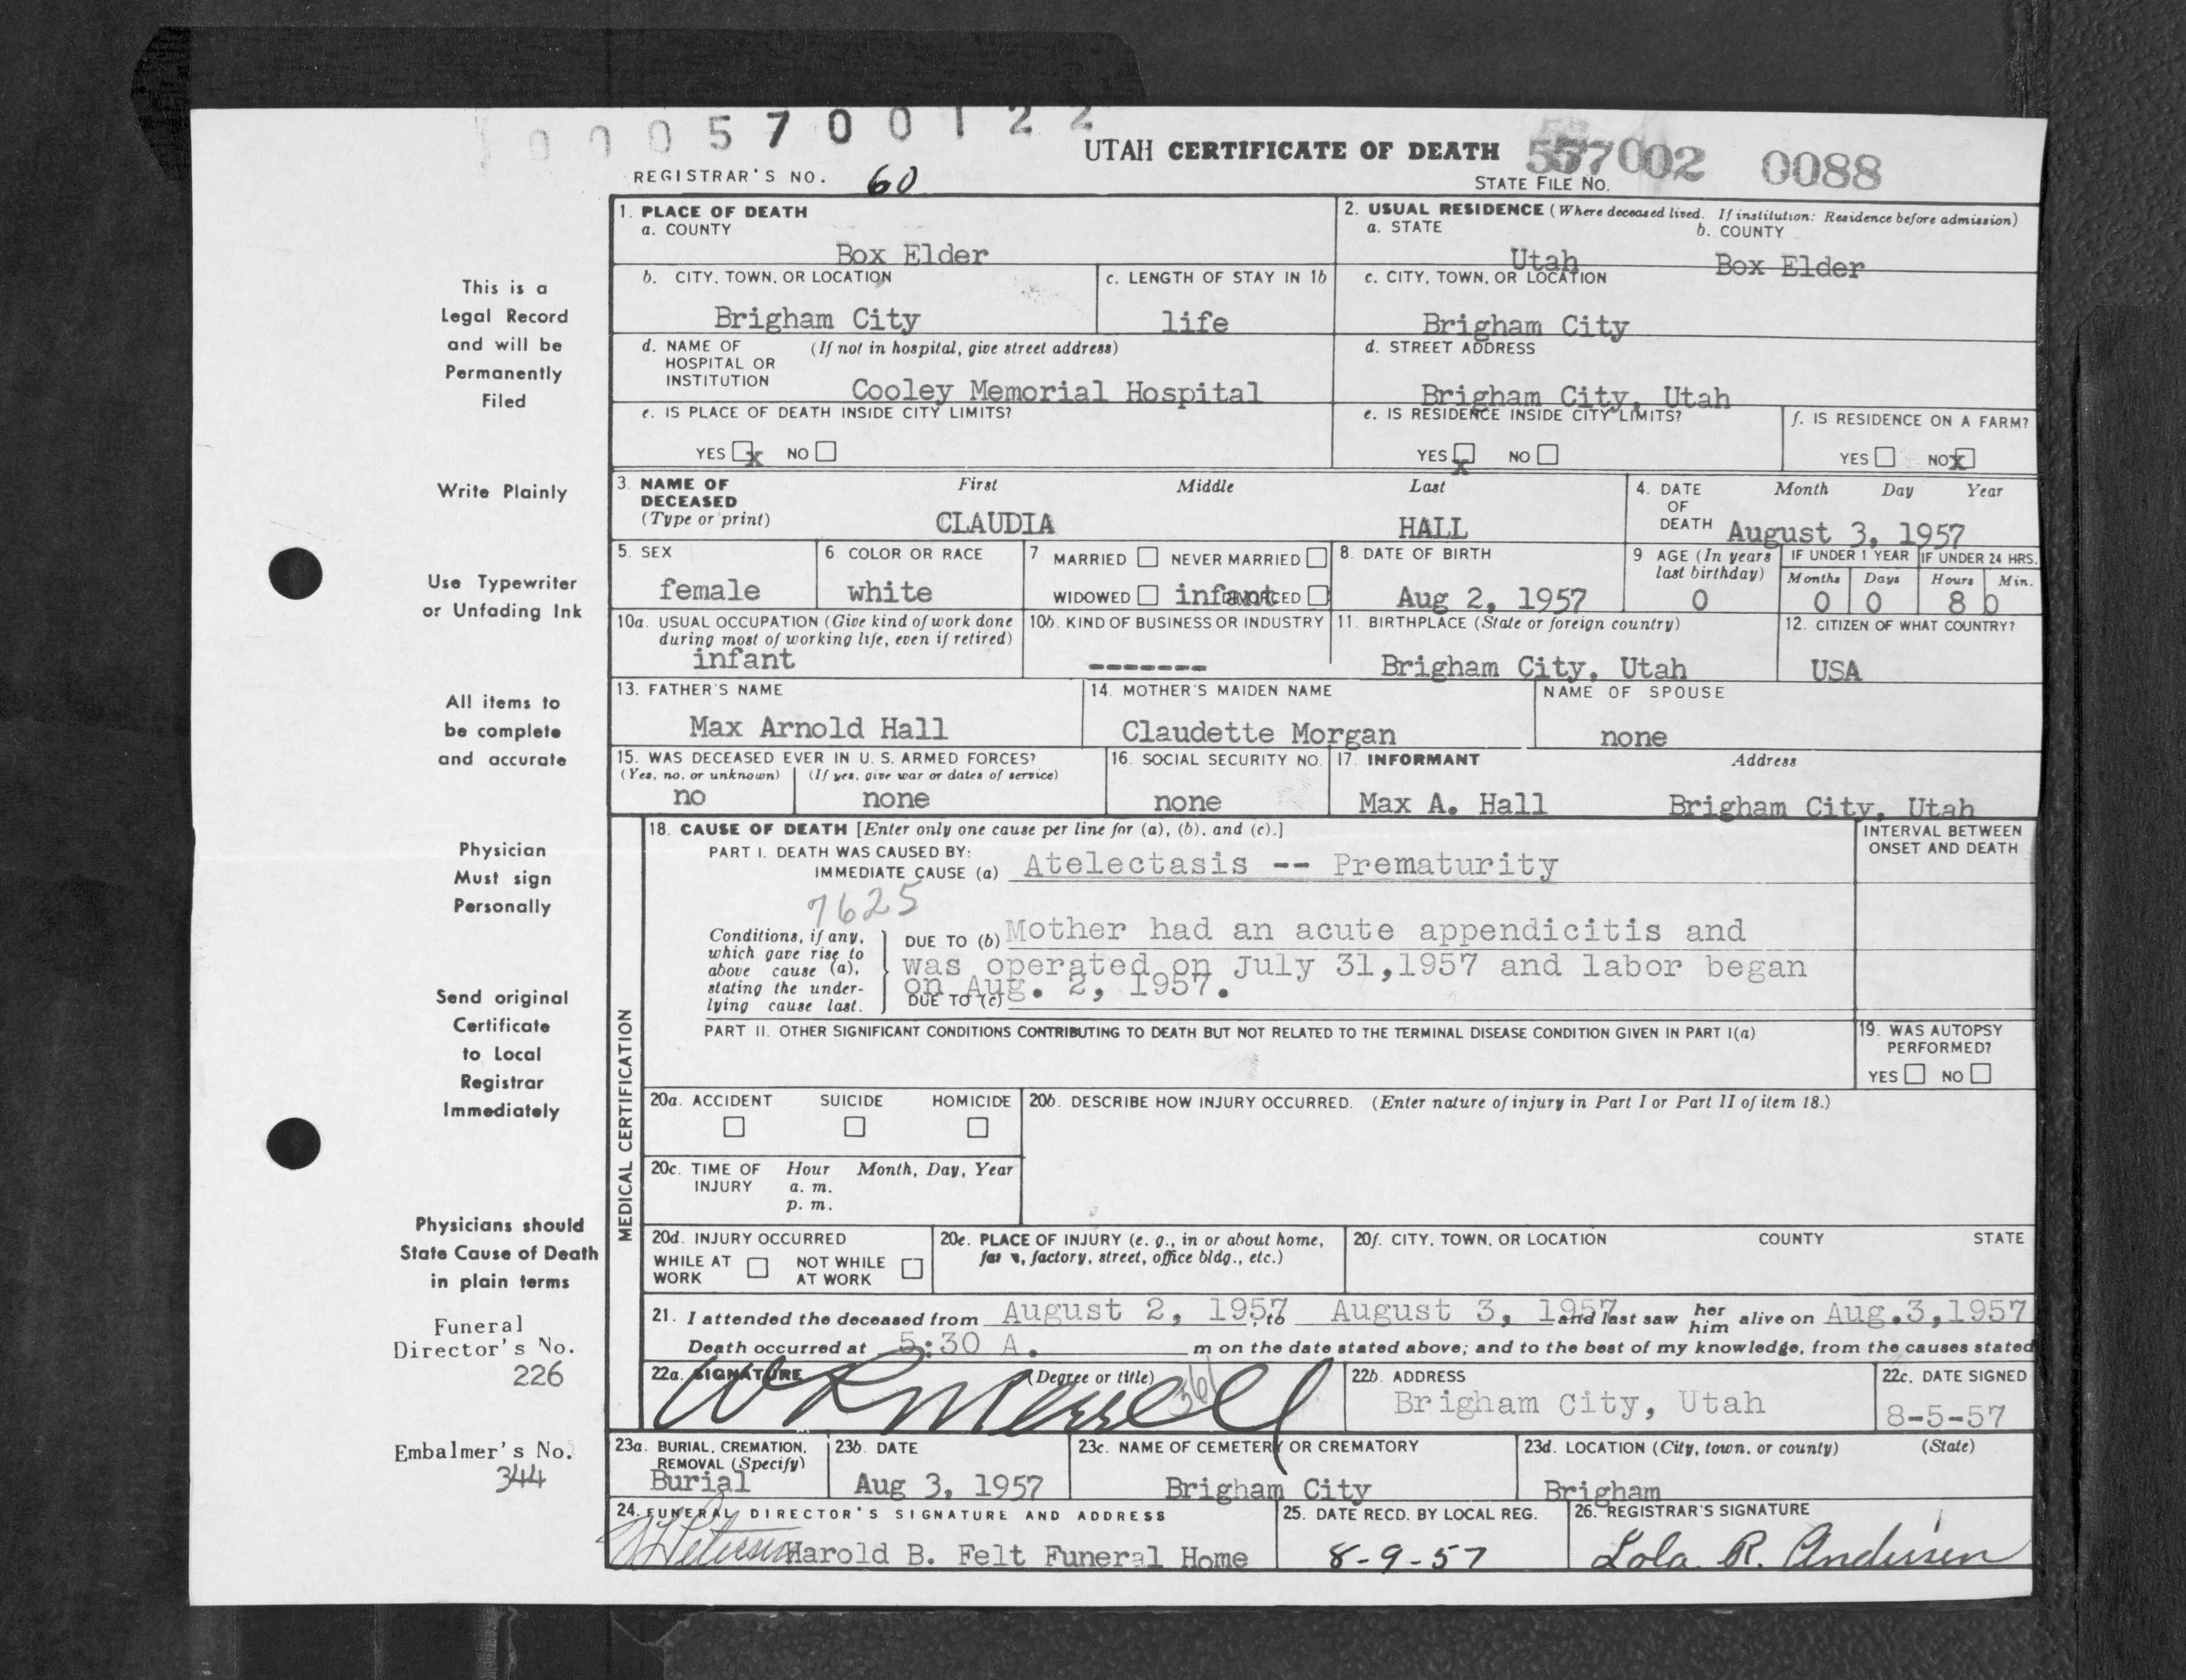 0005700122
UTAH CERTIFICATE OF DEATH
557002 0088
REGISTRAR'S NO. 60
STATE FILE NO.
1. PLACE OF DEATH
a. COUNTY
Box Elder
2. USUAL RESIDENCE (Where deceased lived. If institution: Residence before admission)
a. STATE b. COUNTY
Utah Box Elder
b. CITY, TOWN, OR LOCATION
Brigham City
c. LENGTH OF STAY IN 1b
life
c. CITY, TOWN, OR LOCATION
Brigham City
d. NAME OF HOSPITAL OR INSTITUTION (If not in hospital, give street address)
Cooley Memorial Hospital
d. STREET ADDRESS
Brigham City, Utah
e. IS PLACE OF DEATH INSIDE CITY LIMITS?
YES x NO
e. IS RESIDENCE INSIDE CITY LIMITS?
YES x NO
f. IS RESIDENCE ON A FARM?
YES NO x
3. NAME OF DECEASED (Type or print)
First Middle Last
CLAUDIA HALL
4. DATE OF DEATH Month Day Year
August 3, 1957
5. SEX
female
6. COLOR OR RACE
white
7. MARRIED NEVER MARRIED
WIDOWED infant DIVORCED
8. DATE OF BIRTH
Aug 2, 1957
9 AGE (In years last birthday)
0
IF UNDER 1 YEAR IF UNDER 24 HRS.
Months Days Hours Min.
0 0 8 0
10a. USUAL OCCUPATION (Give kind of work done during most of working life, even if retired)
infant
10b. KIND OF BUSINESS OR INDUSTRY
-------
11. BIRTHPLACE (State or foreign country)
Brigham City, Utah
12. CITIZEN OF WHAT COUNTRY?
USA
13. FATHER'S NAME
Max Arnold Hall
14. MOTHER'S MAIDEN NAME
Claudette Morgan
NAME OF SPOUSE
none
15. WAS DECEASED EVER IN U. S. ARMED FORCES?
(Yes, no, or unknown) (If yes, give war or dates of service)
no none
16. SOCIAL SECURITY NO.
none
17. INFORMANT Address
Max A. Hall Brigham City, Utah
MEDICAL CERTIFICATION
18. CAUSE OF DEATH [Enter only one cause per line for (a), (b), and (c).]
INTERVAL BETWEEN ONSET AND DEATH
PART I. DEATH WAS CAUSED BY:
IMMEDIATE CAUSE (a) Atelectasis -- Prematurity
7625
Conditions, if any, which gave rise to above cause (a), stating the underlying cause last.
DUE TO (b) Mother had an acute appendicitis and
was operated on July 31,1957 and labor began
DUE TO (c) on Aug. 2, 1957.
PART II. OTHER SIGNIFICANT CONDITIONS CONTRIBUTING TO DEATH BUT NOT RELATED TO THE TERMINAL DISEASE CONDITION GIVEN IN PART I(a)
19. WAS AUTOPSY PERFORMED?
YES NO
20a. ACCIDENT SUICIDE HOMICIDE
20b. DESCRIBE HOW INJURY OCCURRED. (Enter nature of injury in Part I or Part II of item 18.)
20c. TIME OF INJURY Hour Month, Day, Year
a. m.
p. m.
20d. INJURY OCCURRED
WHILE AT WORK NOT WHILE AT WORK
20e. PLACE OF INJURY (e. g., in or about home, farm, factory, street, office bldg., etc.)
20f. CITY, TOWN, OR LOCATION COUNTY STATE
21. I attended the deceased from August 2, 1957, to August 3, 1957 and last saw her him alive on Aug.3,1957
Death occurred at 5:30 A. m on the date stated above; and to the best of my knowledge, from the causes stated
22a. SIGNATURE (Degree or title)
W R Merrell
361
22b. ADDRESS
Brigham City, Utah
22c. DATE SIGNED
8-5-57
23a. BURIAL, CREMATION, REMOVAL (Specify)
Burial
23b. DATE
Aug 3, 1957
23c. NAME OF CEMETERY OR CREMATORY
Brigham City
23d. LOCATION (City, town, or county) (State)
Brigham
24. FUNERAL DIRECTOR'S SIGNATURE AND ADDRESS
Petersen Harold B. Felt Funeral Home
25. DATE RECD. BY LOCAL REG.
8-9-57
26. REGISTRAR'S SIGNATURE
Lola R. Andersen
This is a
Legal Record
and will be
Permanently
Filed
Write Plainly
Use Typewriter
or Unfading Ink
All items to
be complete
and accurate
Physician
Must sign
Personally
Send original
Certificate
to Local
Registrar
Immediately
Physicians should
State Cause of Death
in plain terms
Funeral
Director's No.
226
Embalmer's No.
344